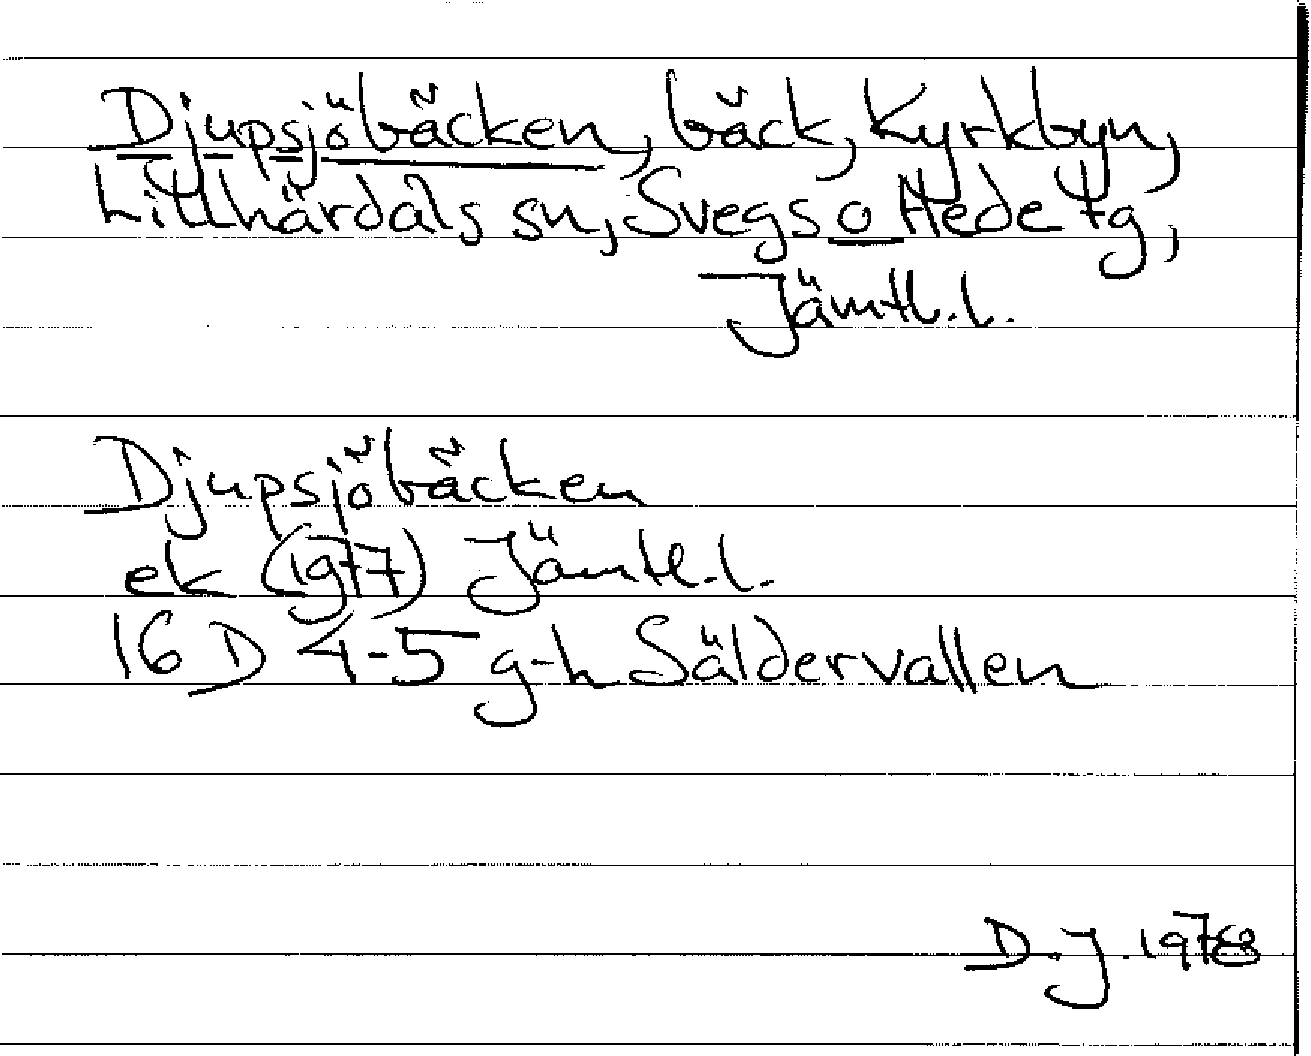 Djupsjöbäcken, bäck, Kyrkbyn,
Lillhärdals sn, Svegs o Hede tg,
Jämtl.l.
Djupsjöbäcken
ek (1977) Jämtl.l.
16 D 4-5 g-h Säldervallen
D.J. 1978